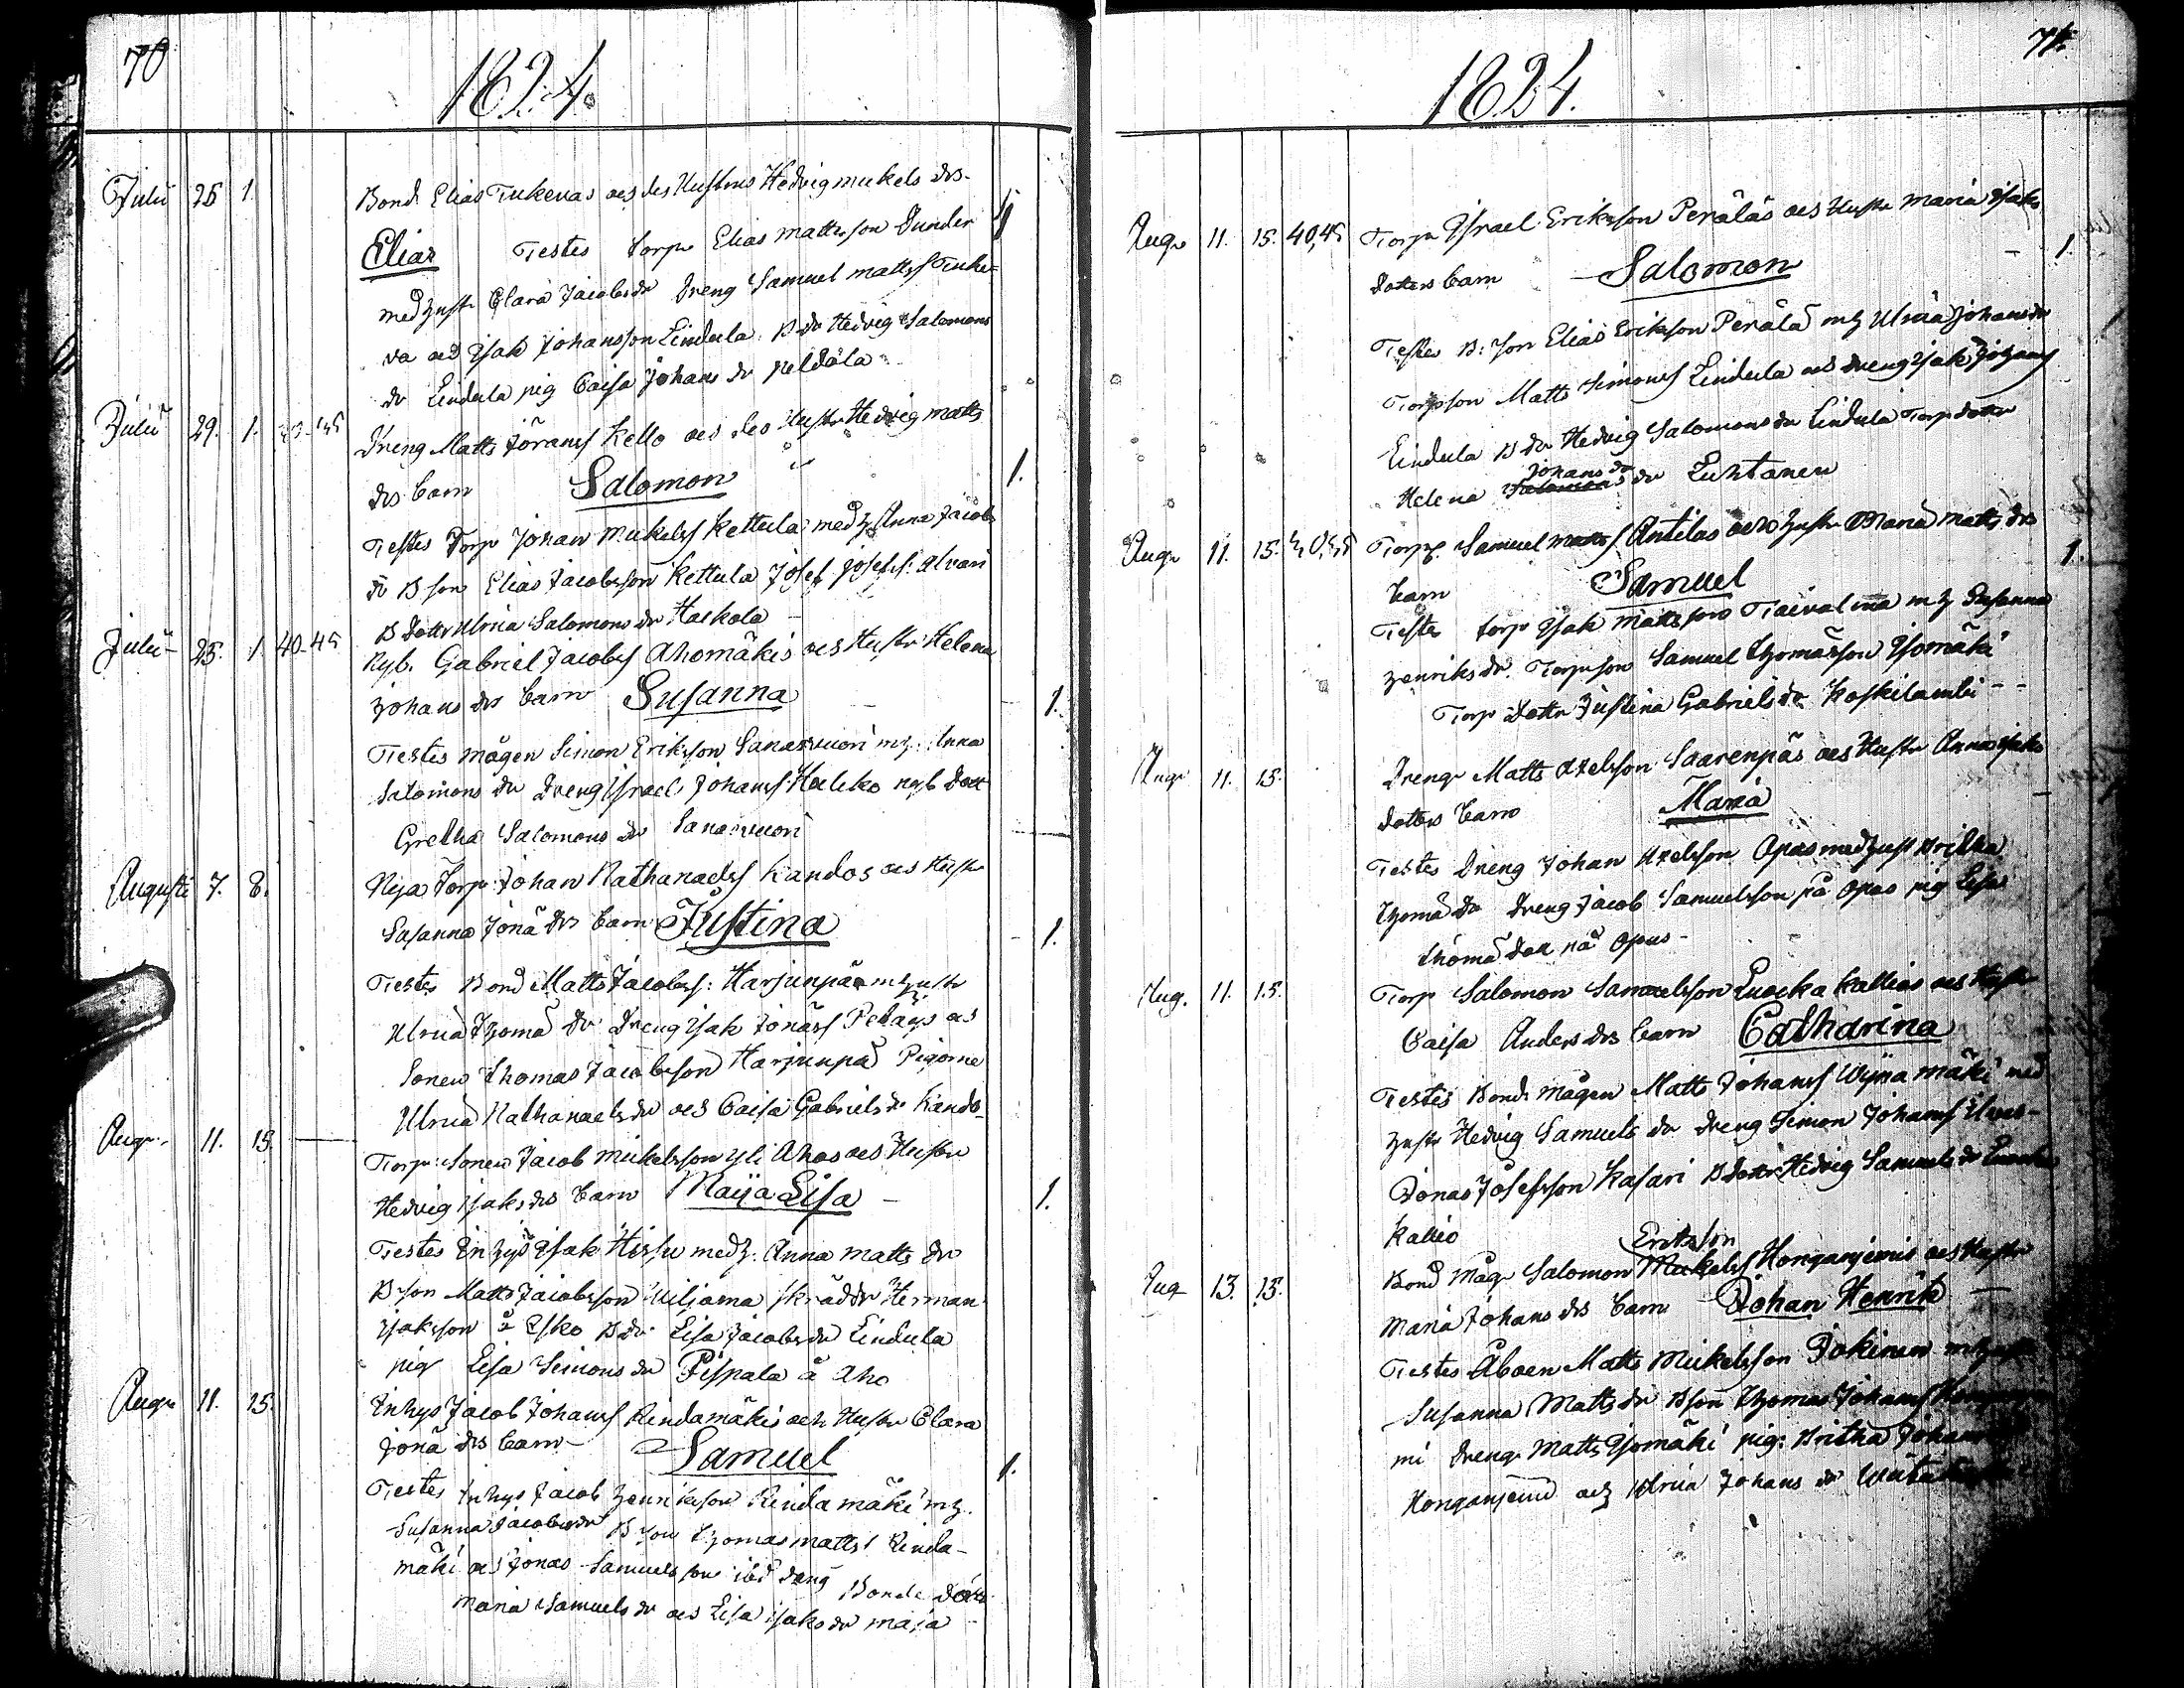 70
1824.
Julii 25 1. Bond. Elias Tukevas och des Hustrus Hedvig mickels drs.
Elias Testes torp. Elias mattsson Sunder 1
med hustr Clara Jacobsdr Dreng Samuel mattss Tuke=
va och Isak Johansson Lindula. B dr Hedvig Salomons
dr Lindula pig Caisa Johans dr peldola
Julii 29. 1. Dreng Matts Jöranss Kello och des Hustr Hedvig matts
drs. barn Salomon 1.
Testes Torp Johan Mickelss Kettula med h. Anna Jacobs
dr B son Elias Jacobsson Kettula Josef josefss. alvari
B dottr Ulrica Salomons dr Haskola
Julii 25. 1 40-45 Nyb. Gabriel Jacobss Ahomäkis och Hustr Helena
Johans drs barn Susanna 1.
Testes mågen Simon Eriksson Sanasvuori m h. Anna
Salomons dr Dreng Israel Johanss Kaleko nyb dott
Gretha Salomons dr Sanasvuori
Augusti 7. 8. Nya Torp. Johan Nathanaelss Kandos och Hustr
Susanna Jona drs barn Justina 1.
Testes Bond Matts Jacobss: Harjunpää m hustr
Ulrica Thoma dr Dreng Isak Jonass Petäys och
Sonen Thomas Jacobsson Harjunpää Pigorne
Ulrica Nathanaelsdr och Caisa Gabriels dr Kando-
Aug. 11. 15. Torp. Sonen Jacob Mickelsson yli Ahos och Hustru
Hedvig Isaks drs barn Maija Lisa 1.
Testes Inhys Isak Hissu med h. Anna matts dr
B son Matts Jacobsson Viljama skräddr Herman
Isaksson å Esko B dr Lisa Jacobs dr Lindula
pig Lisa Simons dr Pispala å Aho
Augu 11. 15. Inhys Jacob Johanss Rindamäkis och Hustr Clara
Jona drs barn Samuel 1.
Testes Inhys Jacob Henriksson Rinda mäki m h.
Susanna Jacobsdr B son Thomas mattss Rinda-
mäki och Jonas Samuelsson ibd Bonde dottr
Maria Samuels dr och Lisa Isaks dr maja
71.
1824.
Augu 11. 15. 40,45 Torp. Israel Eriksson Peräläs och Hustr Maria Isaks
dotters barn Salomon 1.
Testes B: son Elias Erikson Perälä m h Ulrica Johansdr
Torpson Matts Simonss Lindula och dreng Isak Johanss
Lindula B dr Hedvig Salomonsdr Lindula Torp dotter
Johans dr
Helena Salomons dr Luhtanen
Augu 11. 15. 40,45 Torp. Samuel Mattss Antilas och hustr Maria Matts drs
barn Samuel 1.
Testes torp Isak Mattsson Taivalma m h Susanna
Henriks dr. Torpson Samuel Thomasson Isomäki
Torp Dottr Justina Gabriels dr Koskilambi - -
Augu 11. 15. Dreng Matts Axelsson Saarenpäs och Hustr Anna Isaks
dotters barn Maria
Testes Dreng Johan Axelsson Opas med hust Britha
Thoma dr Dreng Jacob Samuelsson på opas pig Lisa
thoma dotr på Opas-
Aug. 11. 15. Torp Salomon Samuelsson Luocka Kallios och Hustr
Caisa Anders drs barn Catharina
Testes Bond. mågen Matts Johanss Wijna mäki med
hustr Hedvig Samuels dr Dreng Simon Johanss
Jonas Josefsson Kasari B dottr Hedvig Samuels dr
Kallio
Eriksson
Aug 13. 15. Bond måg. Salomon Mickelss Honganjemis och Hustr
Maria Johans drs barn Johan Henrik
Testes Åboen Matts Mickelsson Jokinen m hustr
Susanna Matts dr B son Thomas Johanss
mi Dreng Matts Isomäki pig. Britha Johans
Honganjemi och Ulrica Johans dr